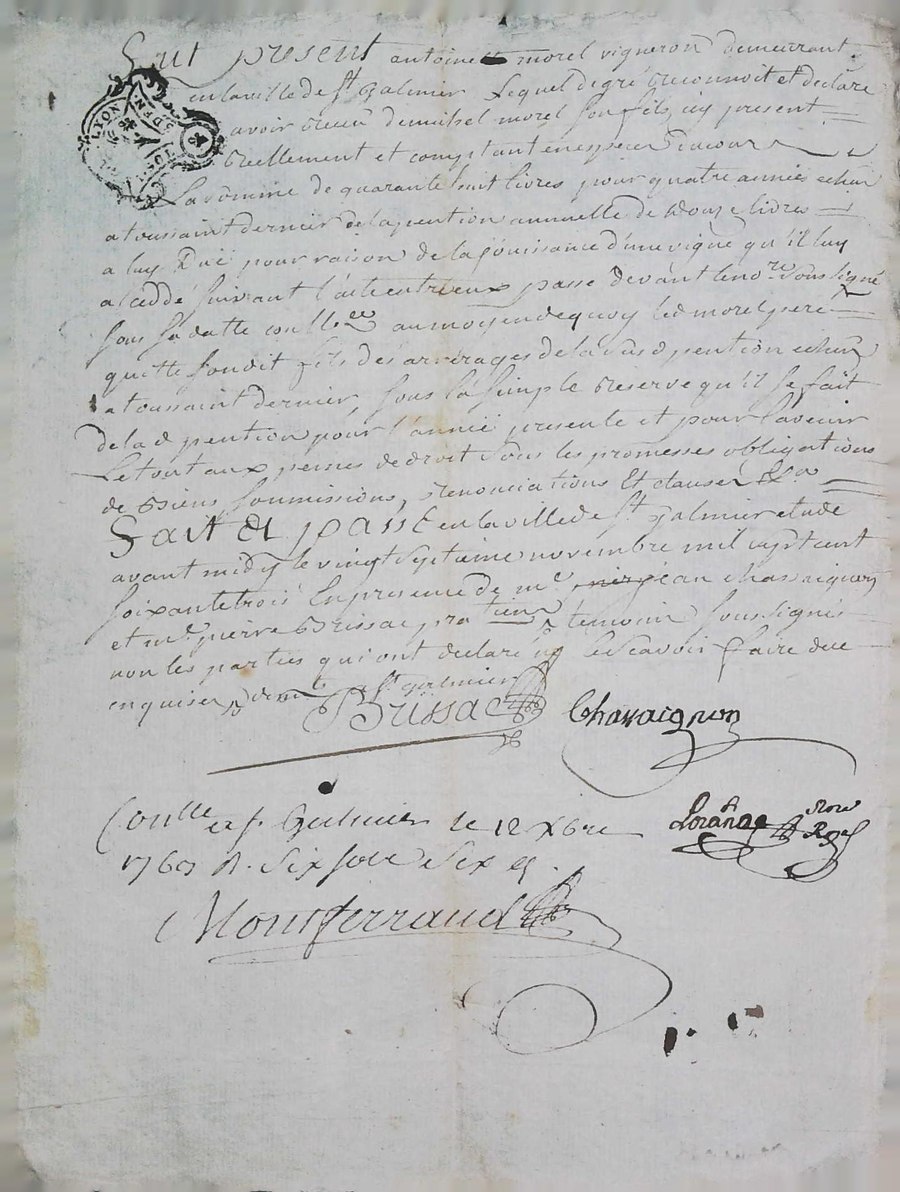 Fut present antoine morel vigneron demeurant
en la ville de St Galmier Lequel de gré reconnoit et declare
avoir receu de michel morel son fils icy present
reellement et comptant en especes
La somme de quarante huit livres pour quatre années echue
a toussaint dernier de la pention annuelle de douze livres
a luy pour raison de la jouissance d'une vigne qu'il luy
a ceddé suivant l'acte entre eux passé devant le nore soussigné
sous sa datte conllee au moyen de quoy led morel pere
quitte sondit fils des arrerages de la pention echue
a toussaint dernier sous la simple reserve qu'il se fait
de lad pention pour l'année presente et pour l'avenir
Le tout aux peines de droit sous les promesses obligations
de Biens soumissions, renonciations Et clauses &a
Fait et passé en la ville de St galmier etude
avant midy le vingt septieme novembre mil sept cent
soixante trois En presence de me jean chavaignon
et me pierre Brissac temoins soussignés
non les parties qui ont declaré ne le scavoir faire de ce
enquises St galmier
Brissac Chavaignon
Conlle a st Galmier le 12 xbre
1763 R. six sols six d.
Lorange Nore Royal
Montferrand